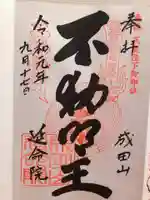 奉拝
成田山
不動明王
延命院
令和元年
九月十七日